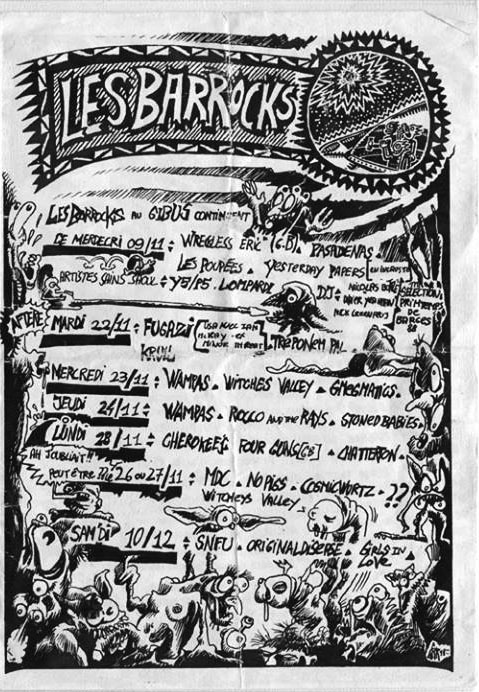 LES BARROCKS
LES BARROCKS AU GIBUS CONTINUENT
CE MERCECRI 09/11 : WREGLESS ERIC (G.B) PASADENAS
LES POUPÉES YESTERDAY PAPERS
ARTISTES SAINS SAOUL : Y5/P5. LOMPARDI DJ :
SELECTION
PRINTEMPS
DE
BOURGES
88
AFTERE MARDI 22/11 : FUGAZI TREPONEM PAL
KRULL
MERCREDI 23/11 : WAMPAS WITCHES VALLEY GMOGMATICS
JEUDI 24/11 : WAMPAS ROCCO AND THE RAYS STONED BABIES
LUNDI 28/11 : CHEROKEES FOUR GUNS [GB] CHATTERTON
AH J'OUBLIAIT!!
PEUT ÊTRE 26 OU 27/11 : MDC NO PIGS COSMIC WURTZ ??
WITCHEYS VALLEY
SAM'DI 10/12 : SNFU ORIGINAL DISEASE GIRLS IN
LOVE